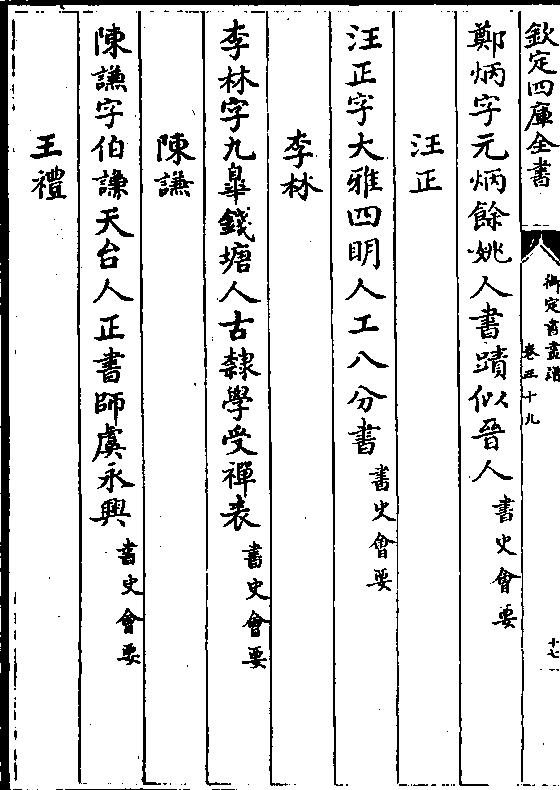 欽定四庫全書
御定書畫譜
卷五十九
十七
鄭炳字元炳餘姚人書蹟似晉人書史會要
汪正
汪正字大雅四明人工八分書書史會要
李林
李林字九臯錢塘人古隸學受禪表書史會要
陳謙
陳謙字伯謙天台人正書師虞永興書史會要
王禮